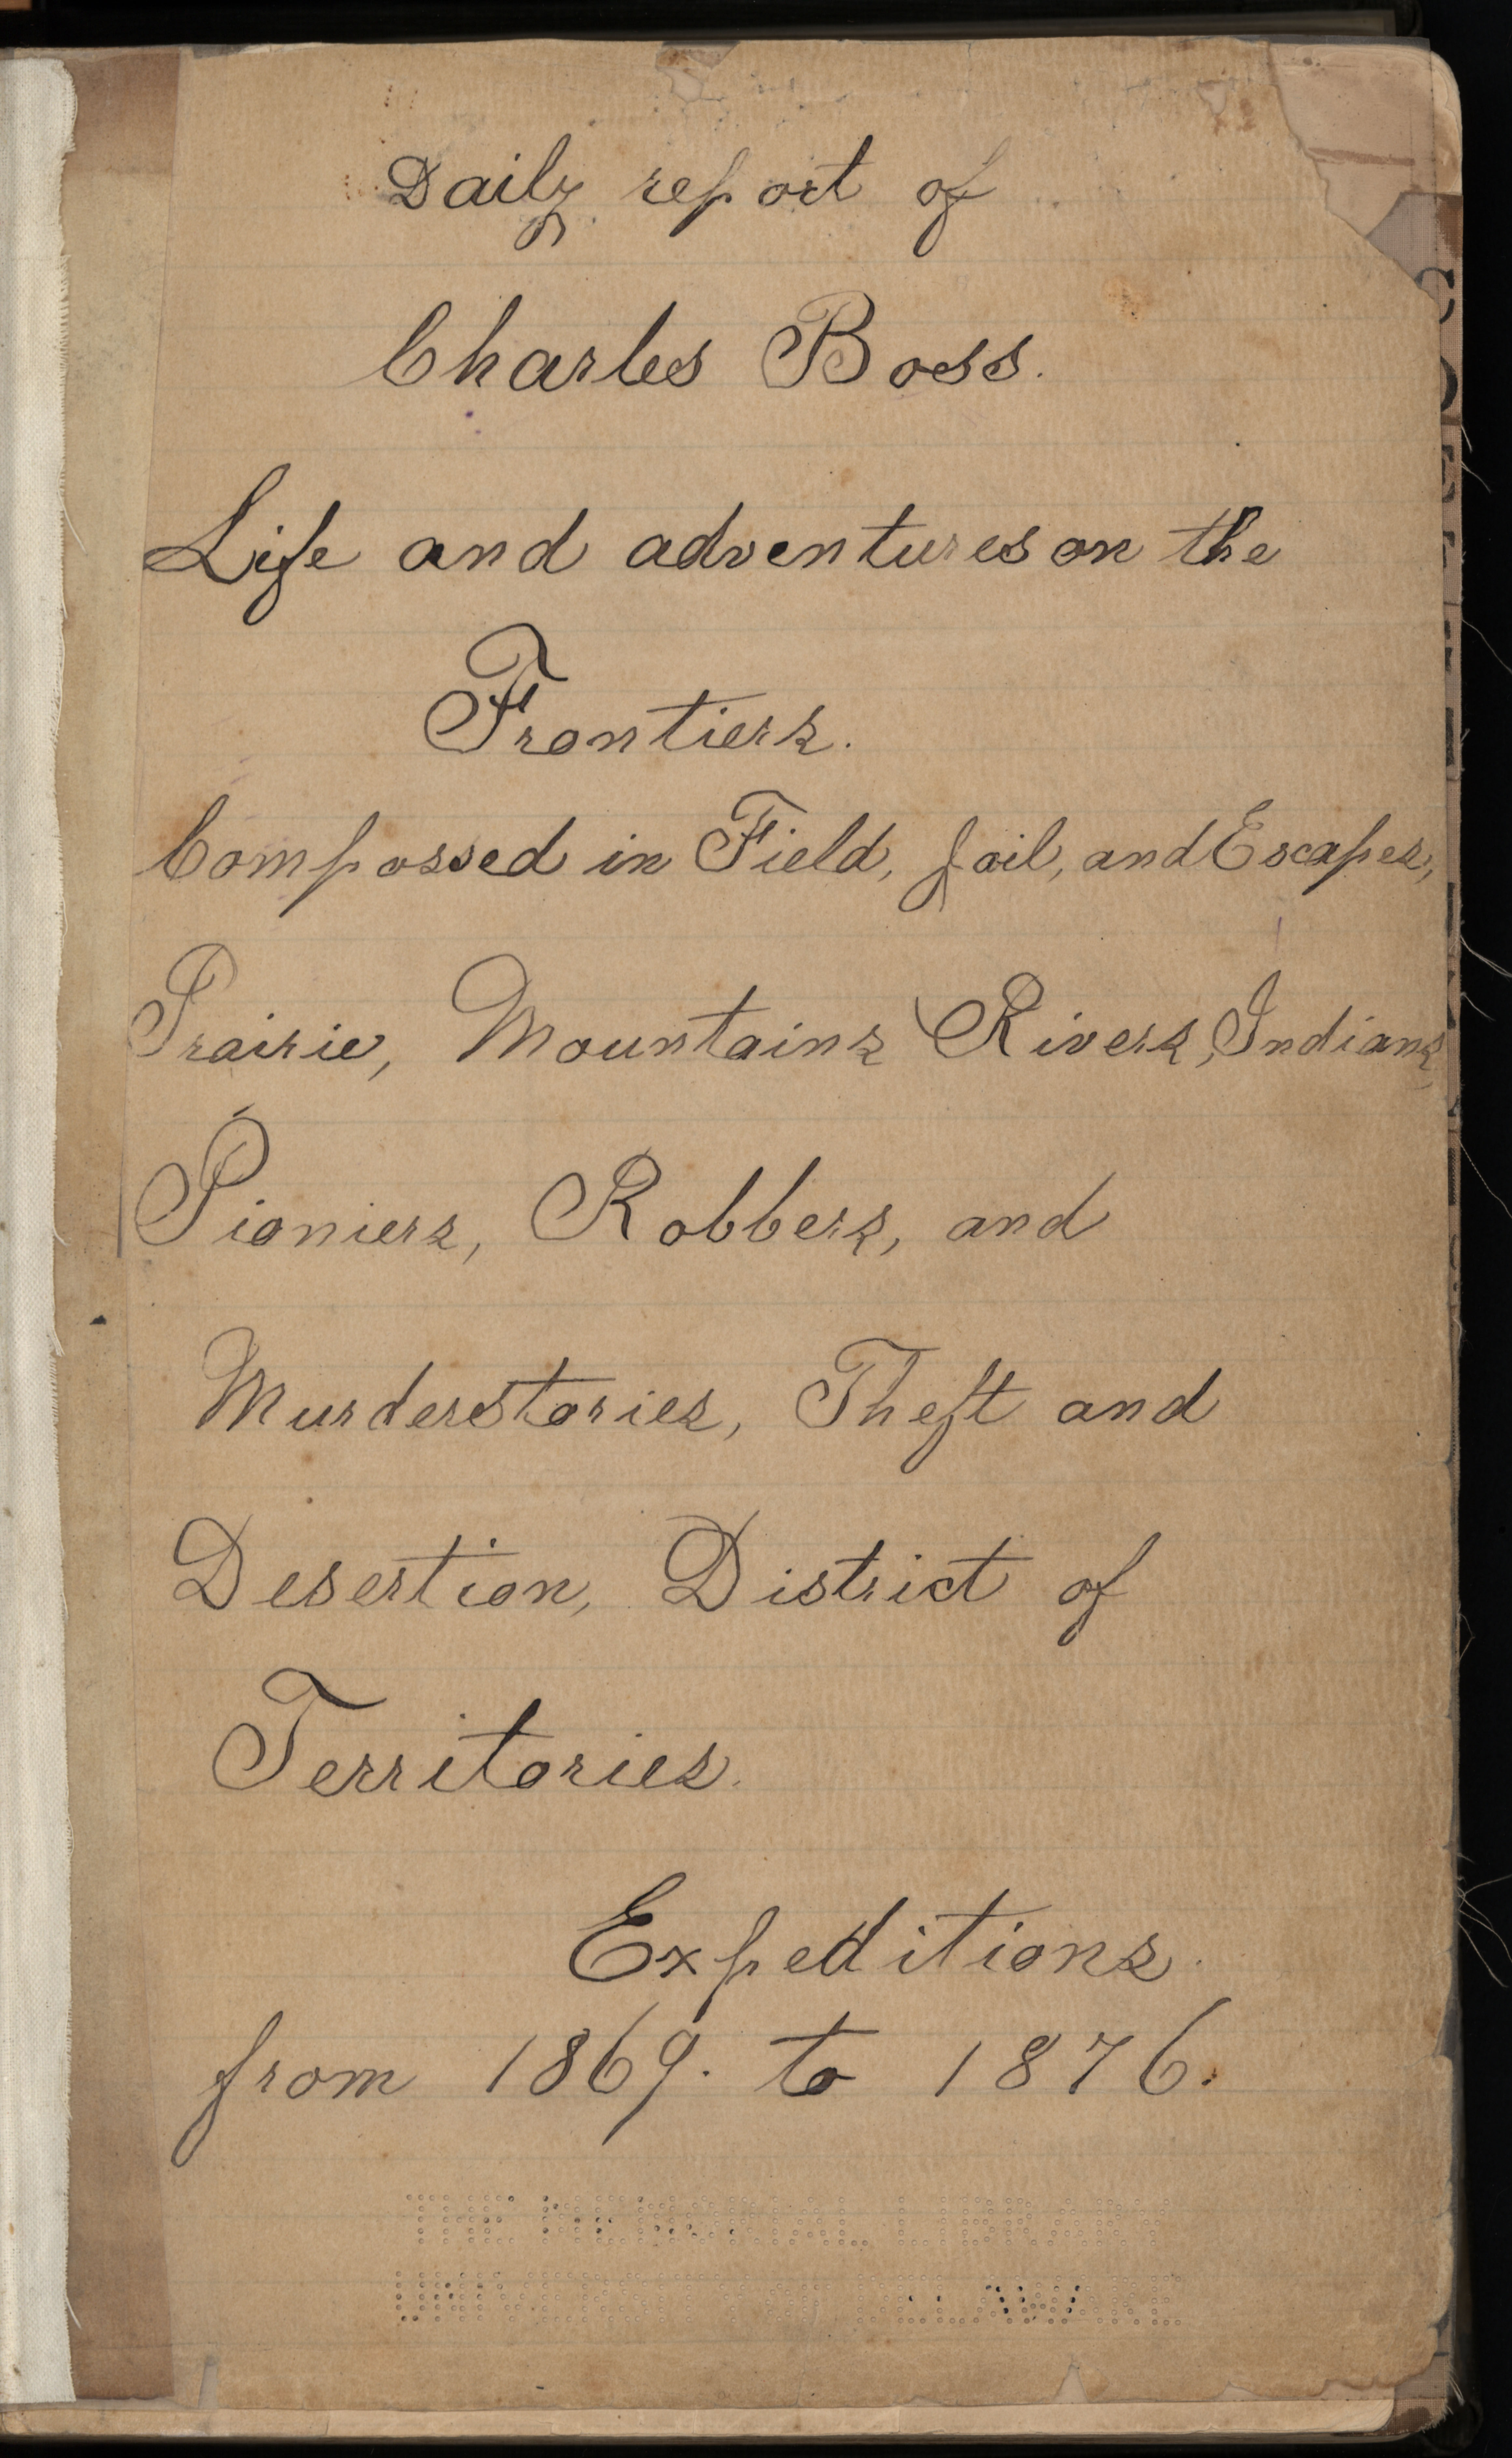 Daily report of
Charles Boss.
Life and adventures on the
Frontiers.
Compossed in Field, Jail, and Escapes,
Prairie, Mountains Rivers, Indians,
Pioniers, Robbers, and
Murderstories, Theft and
Desertion, District of
Territories.
Expeditions.
from 1869. to 1876.
THE MEMORIAL LIBRARY
UNIVERSITY OF DELAWARE